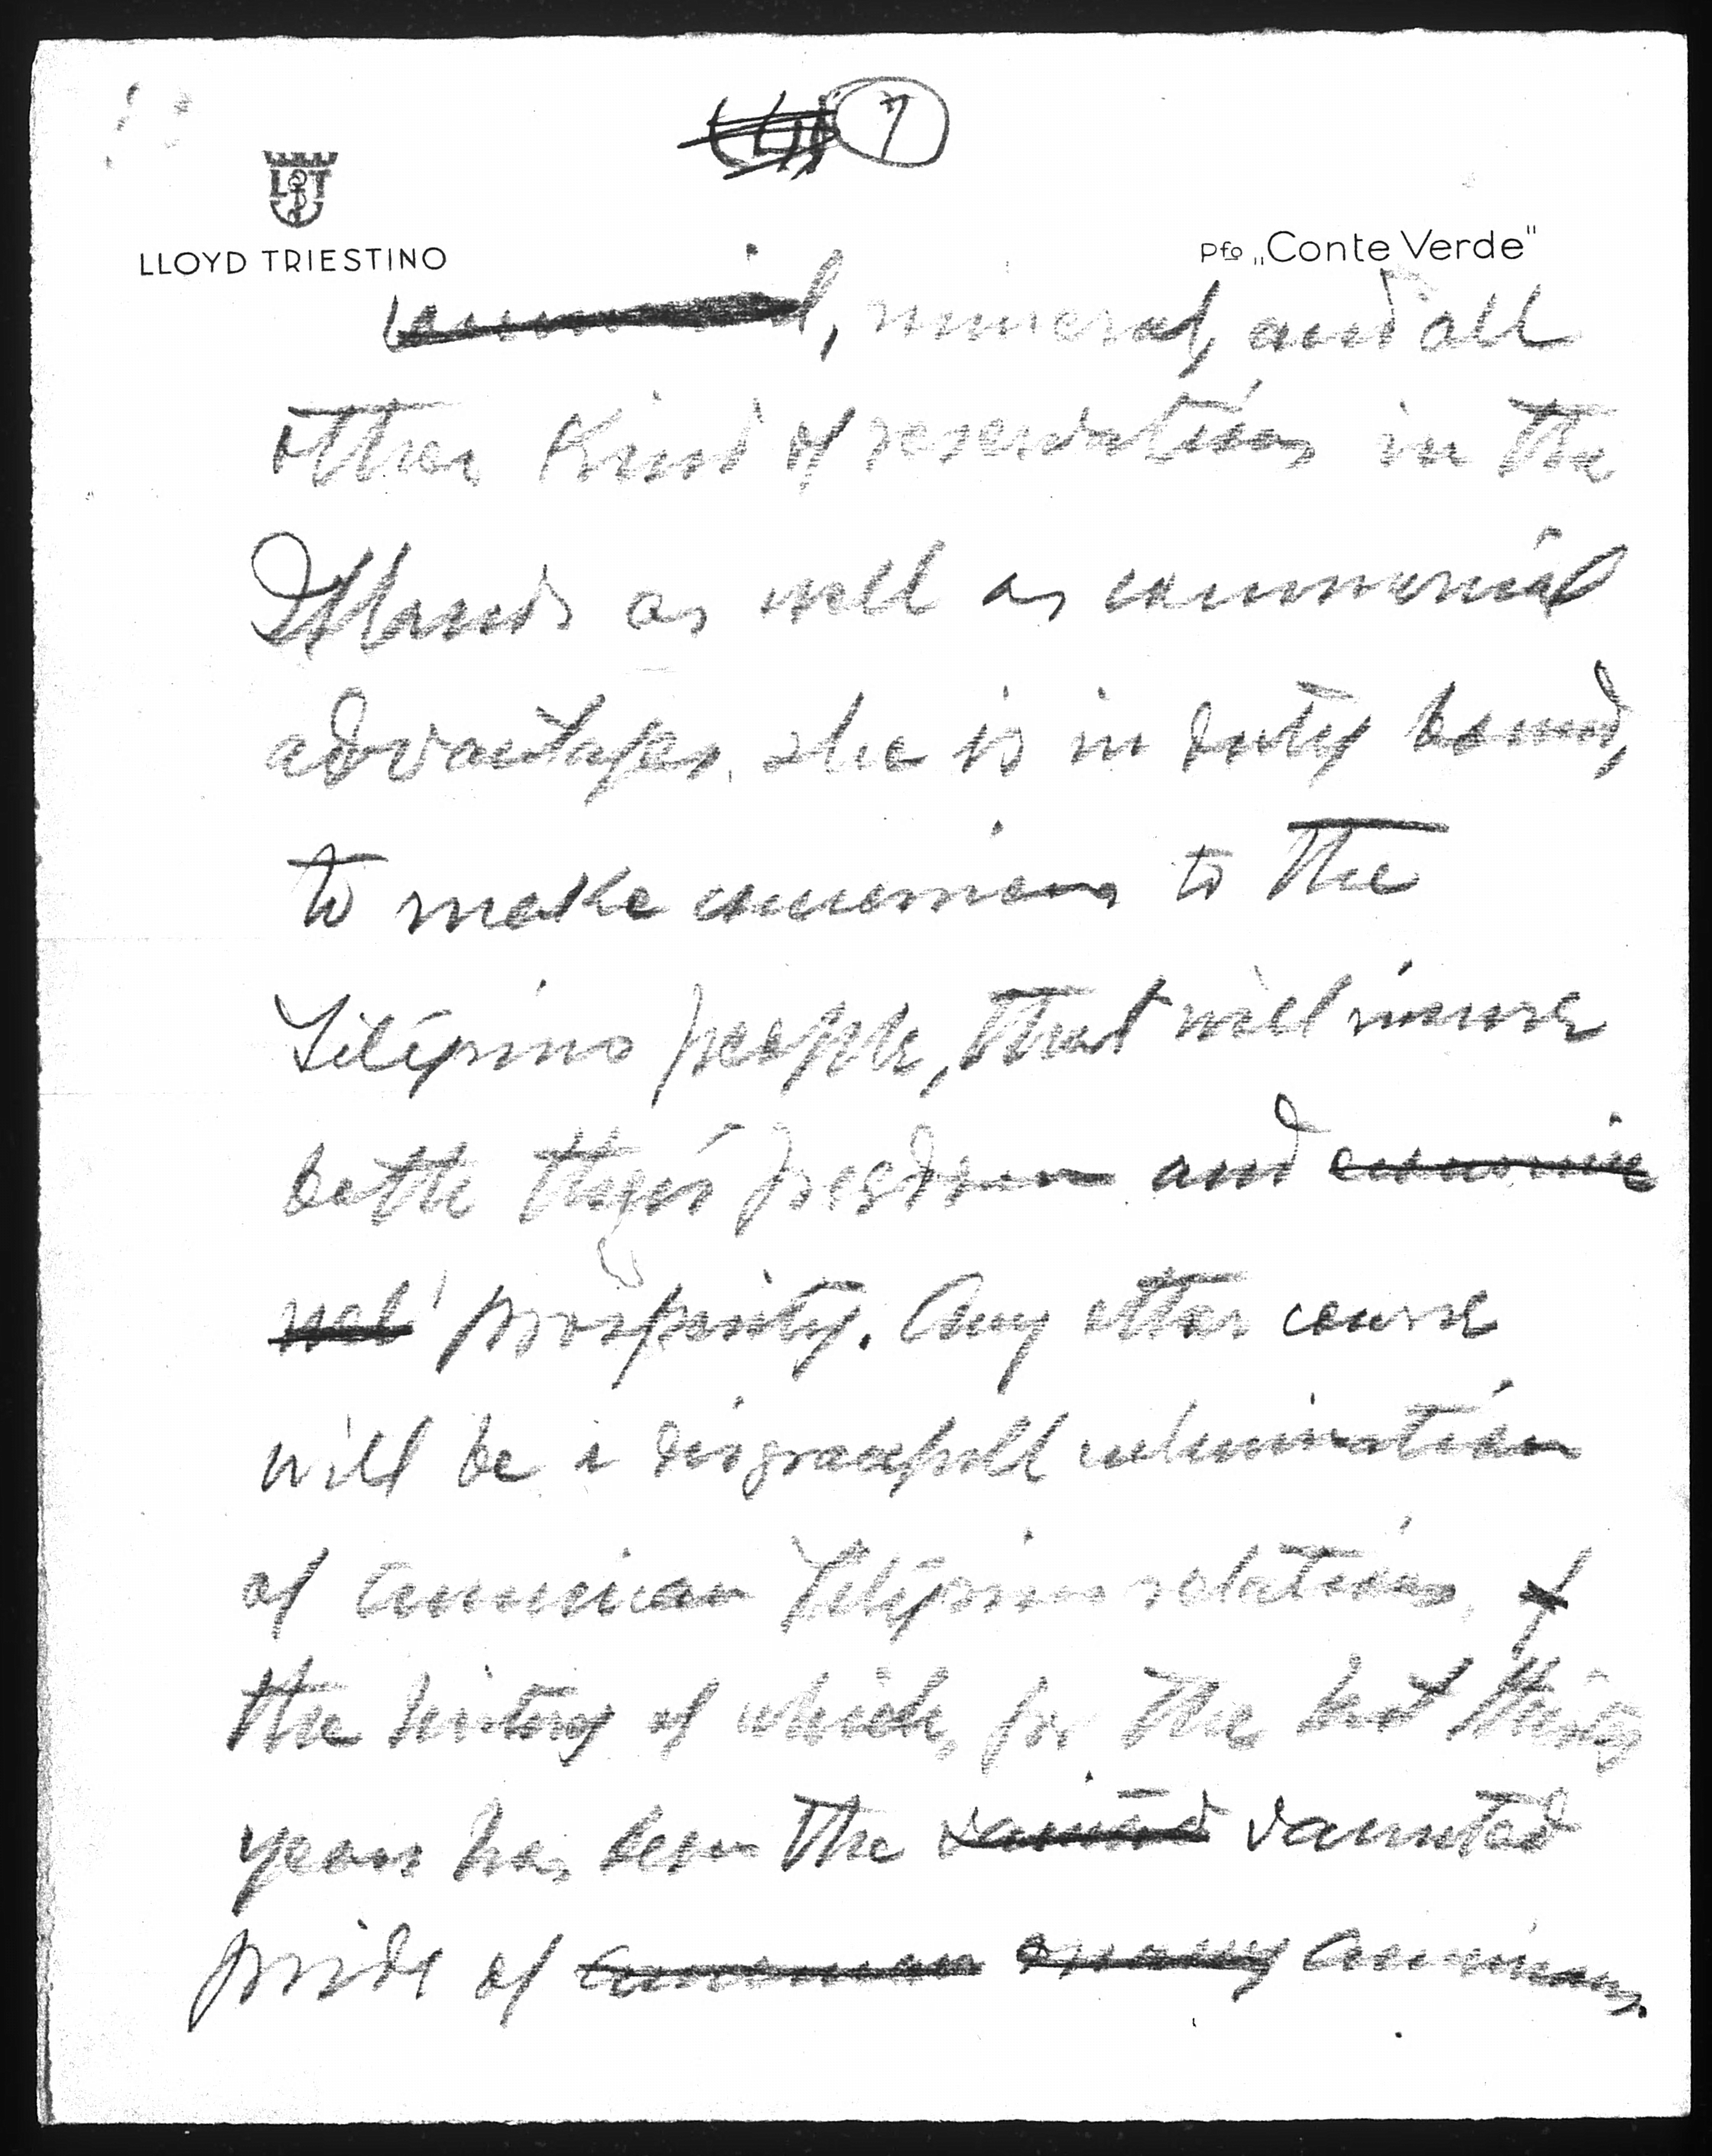 7
LLOYD TRIESTINO
Pfo „Conte Verde"
commercial, mineral, and all
other kind of reservations in the
Islands as well as commercial
advantages, she is in duty bound,
to make concessions to the
Filipino people, that will insure
both their freedom and economic
prosperity. Any other course
will be a disgracefull culmination
of American Filipino relations,
the history of which, for the last thirty
years has been the vaunted
pride of Americans.